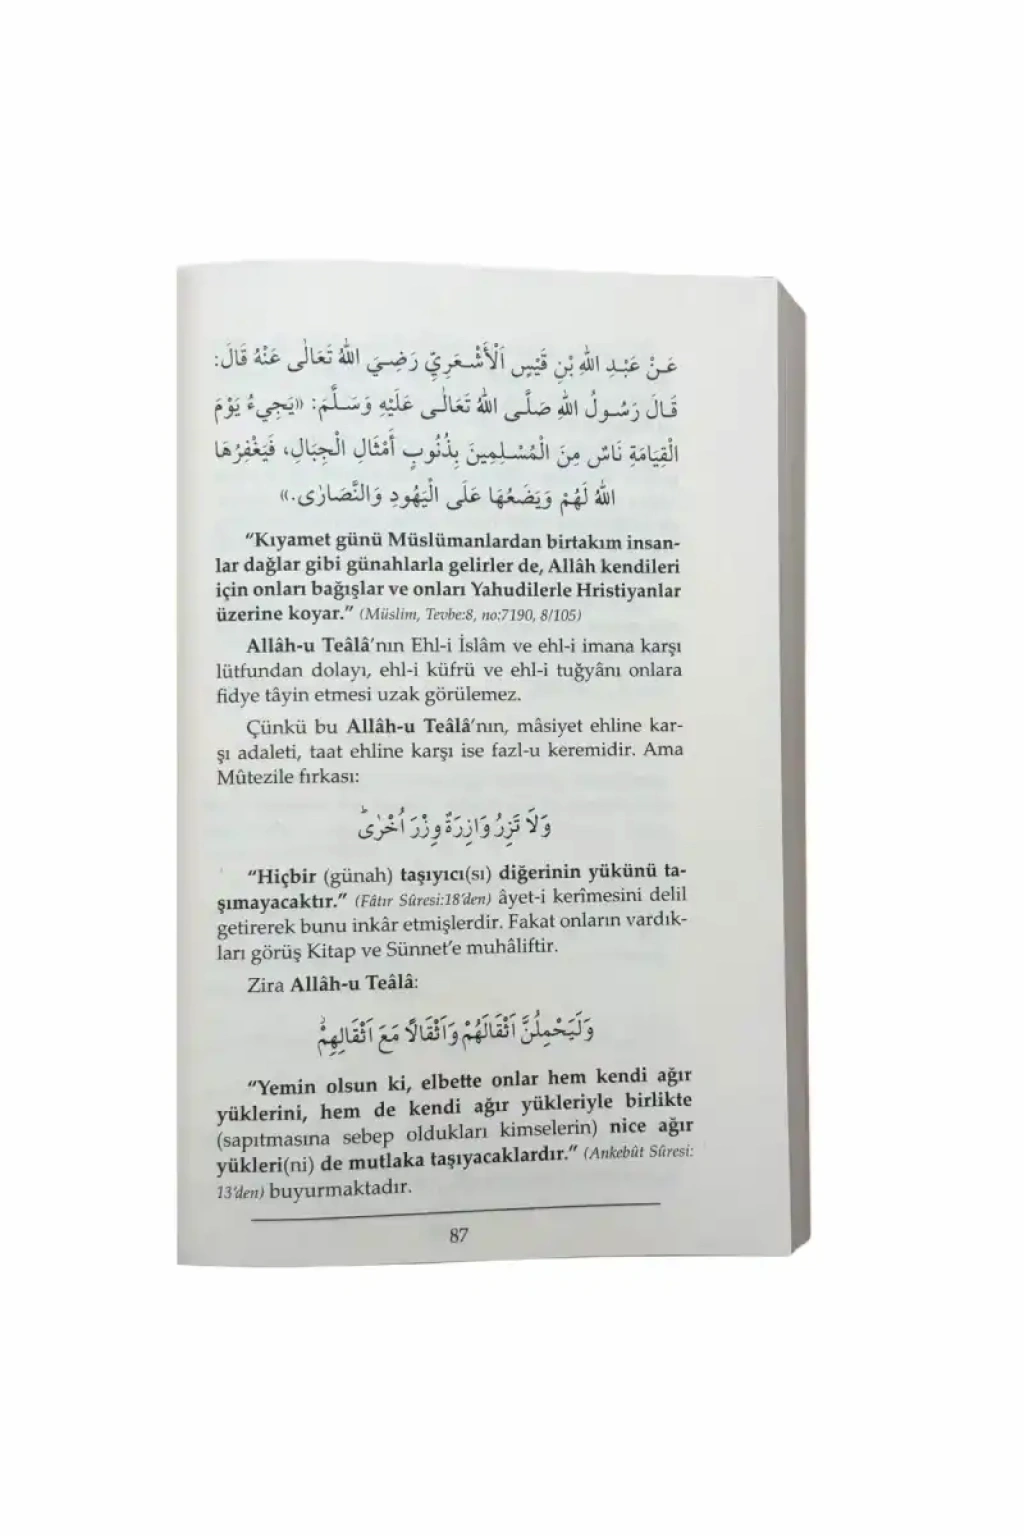 عَنْ عَبْدِ اللّٰهِ بْنِ قَيْسٍ اَلْأَشْعَرِيِّ رَضِيَ اللّٰهُ تَعَالٰى عَنْهُ قَالَ:
قَالَ رَسُولُ اللّٰهِ صَلَّى اللّٰهُ تَعَالٰى عَلَيْهِ وَسَلَّمَ: «يَجِيءُ يَوْمَ
الْقِيَامَةِ نَاسٌ مِنَ الْمُسْلِمِينَ بِذُنُوبٍ أَمْثَالِ الْجِبَالِ، فَيَغْفِرُهَا
اللّٰهُ لَهُمْ وَيَضَعُهَا عَلَى الْيَهُودِ وَالنَّصَارٰى.»
“Kıyamet günü Müslümanlardan birtakım insan-
lar dağlar gibi günahlarla gelirler de, Allâh kendileri
için onları bağışlar ve onları Yahudilerle Hristiyanlar
üzerine koyar.” (Müslim, Tevbe:8, no:7190, 8/105)
Allâh-u Teâlâ’nın Ehl-i İslâm ve ehl-i imana karşı
lütfundan dolayı, ehl-i küfrü ve ehl-i tuğyânı onlara
fidye tâyin etmesi uzak görülemez.
Çünkü bu Allâh-u Teâlâ’nın, mâsiyet ehline kar-
şı adaleti, taat ehline karşı ise fazl-u keremidir. Ama
Mûtezile fırkası:
وَلَا تَزِرُ وَازِرَةٌ وِزْرَ اُخْرٰىۜ
“Hiçbir (günah) taşıyıcı(sı) diğerinin yükünü ta-
şımayacaktır.” (Fâtır Sûresi:18’den) âyet-i kerîmesini delil
getirerek bunu inkâr etmişlerdir. Fakat onların vardık-
ları görüş Kitap ve Sünnet’e muhâliftir.
Zira Allâh-u Teâlâ:
وَلَيَحْمِلُنَّ اَثْقَالَهُمْ وَاَثْقَالًا مَعَ اَثْقَالِهِمْۘ
“Yemin olsun ki, elbette onlar hem kendi ağır
yüklerini, hem de kendi ağır yükleriyle birlikte
(sapıtmasına sebep oldukları kimselerin) nice ağır
yükleri(ni) de mutlaka taşıyacaklardır.” (Ankebût Sûresi:
13’den) buyurmaktadır.
87